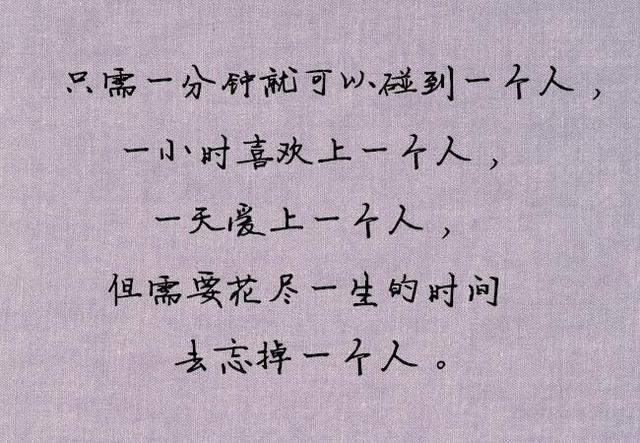 只需一分钟就可以碰到一个人，
一小时喜欢上一个人，
一天爱上一个人，
但需要花尽一生的时间
去忘掉一个人。